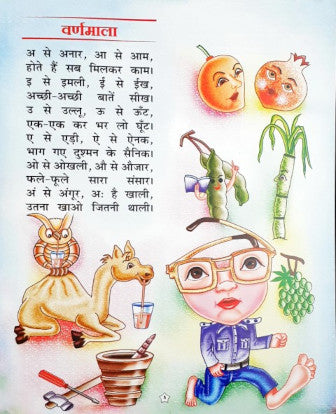 वर्णमाला
अ से अनार, आ से आम,
होते हैं सब मिलकर काम।
इ से इमली, ई से ईख,
अच्छी-अच्छी बातें सीख।
उ से उल्लू, ऊ से ऊँट,
एक-एक कर भर लो घूँट।
ए से एड़ी, ऐ से ऐनक,
भाग गए दुश्मन के सैनिक।
ओ से ओखली, औ से औजार,
फले-फूले सारा संसार।
अं से अंगूर, अः है खाली,
उतना खाओ जितनी थाली।